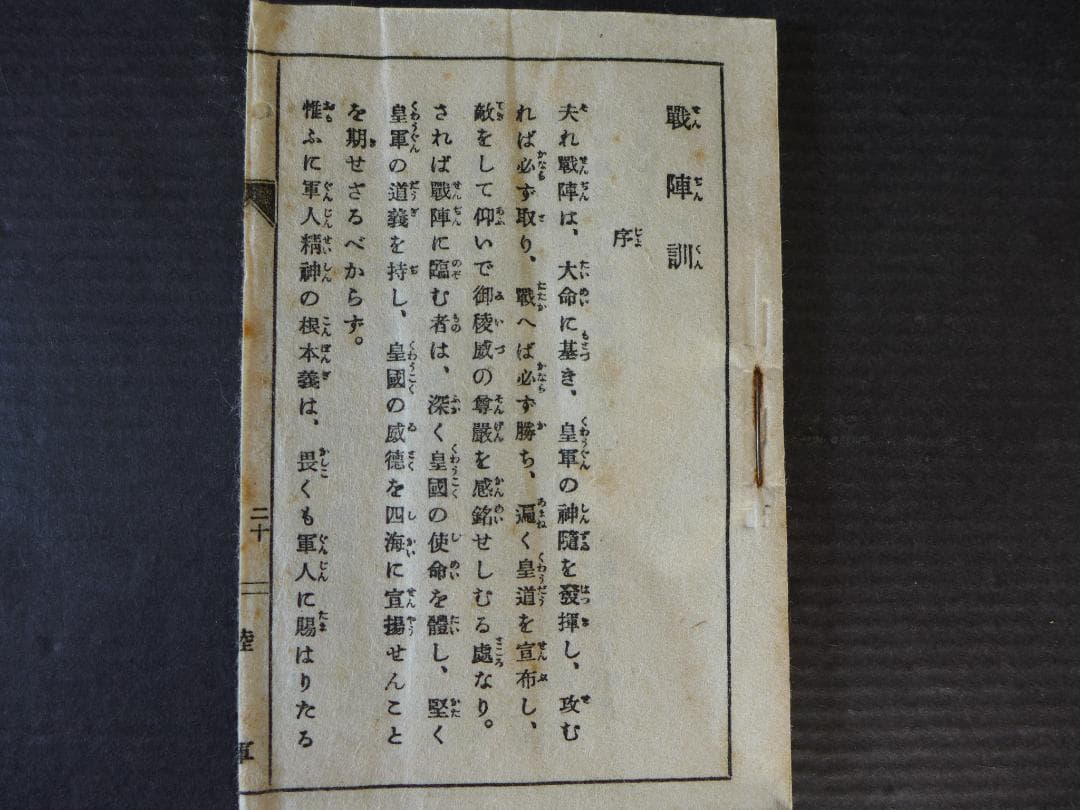 戰陣訓
序
夫れ戰陣は、大命に基き、皇軍の神隨を發揮し、攻む
れば必ず取り、戰へば必ず勝ち、遍く皇道を宣布し、
敵をして仰いで御稜威の尊嚴を感銘せしむる處なり。
されば戰陣に臨む者は、深く皇國の使命を體し、堅く
皇軍の道義を持し、皇國の威德を四海に宣揚せんこと
を期せざるべからず。
惟ふに軍人精神の根本義は、畏くも軍人に賜はりたる
二十
陸軍